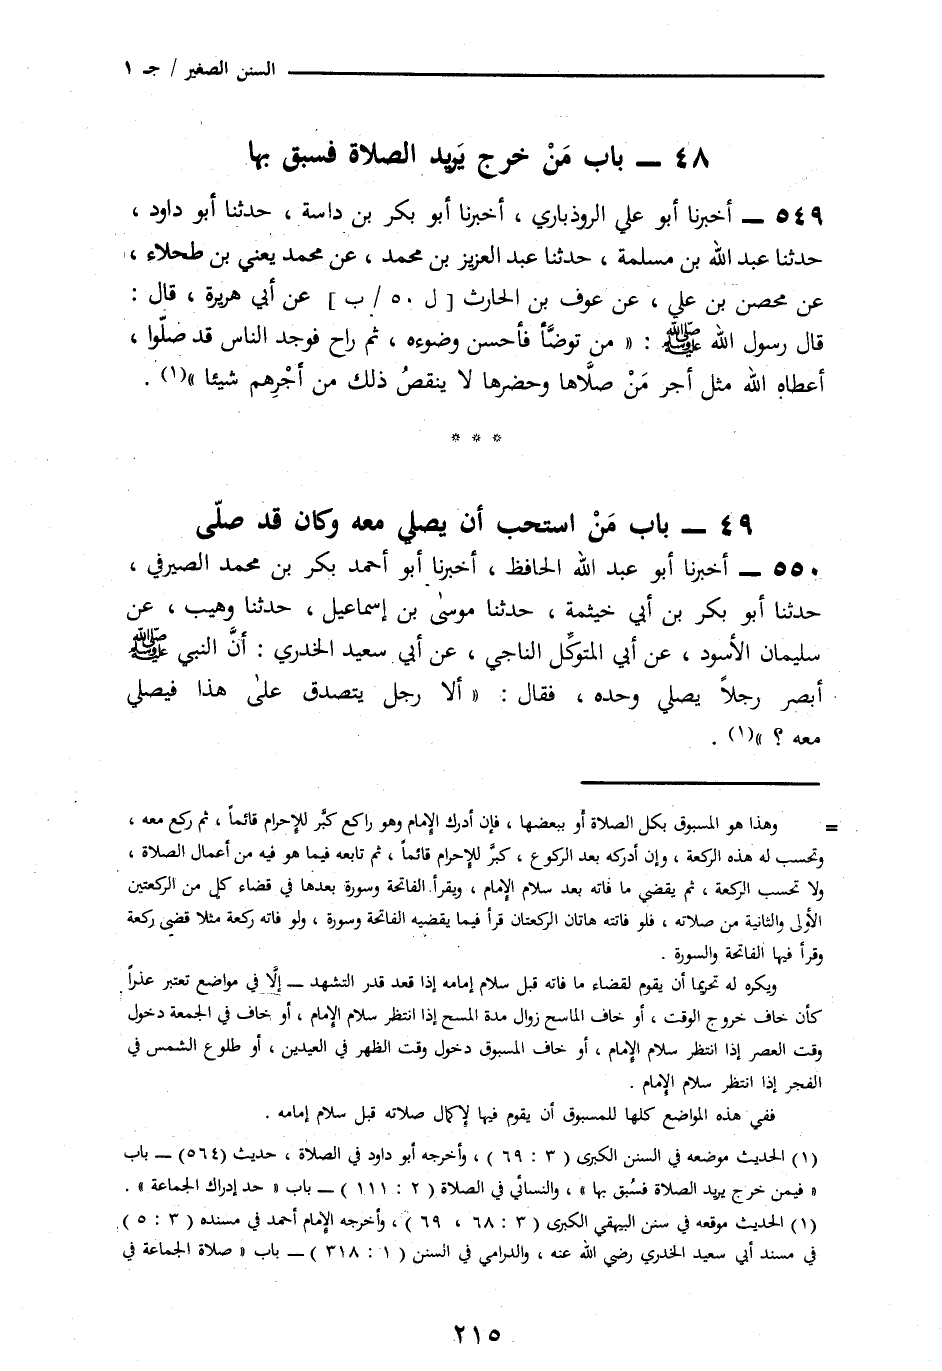 السنن الصغير / جـ ١
٤٨ ــ باب مَنْ خرج يَريد الصلاة فسبق بها
٥٤٩ ــ أخبرنا أبو علي الروذباري ، أخبرنا أبو بكر بن داسة ، حدثنا أبو داود ،
حدثنا عبد الله بن مسلمة ، حدثنا عبد العزيز بن محمد ، عن محمد يعني بن طحلاء ،
عن محصن بن علي ، عن عوف بن الحارث [ ل ٥٠ / ب ] عن أبي هريرة ، قال :
قال رسول الله ﷺ : « من توضَّأ فأحسن وضوءه ، ثم راح فوجد الناس قد صلّوا ،
أعطاه الله مثل أجر مَنْ صلَّاها وحضرها لا ينقصُ ذلك من أجْرِهم شيئا »(١) .
* * *
٤٩ ــ باب مَنْ استحب أن يصلي معه وكان قد صلّى
٥٥٠ ــ أخبرنا أبو عبد الله الحافظ ، أخبرنا أبو أحمد بكر بن محمد الصيرفي ،
حدثنا أبو بكر بن أبي خيثمة ، حدثنا موسىٰ بن إسماعيل ، حدثنا وهيب ، عن
سليمان الأسود ، عن أبي المتوكِّل الناجي ، عن أبي سعيد الخدري : أنَّ النبي ﷺ
أبصر رجلاً يصلي وحده ، فقال : « ألا رجل يتصدق علىٰ هذا فيصلي
معه ؟ »(١) .
= وهذا هو المسبوق بكل الصلاة أو ببعضها ، فإن أدرك الإمام وهو راكع كبَّر للإحرام قائماً ، ثم ركع معه ،
وتحسب له هذه الركعة ، وإن أدركه بعد الركوع ، كبرَّ للإحرام قائماً ، ثم تابعه فيما هو فيه من أعمال الصلاة ،
ولا تحسب الركعة ، ثم يقضي ما فاته بعد سلام الإمام ، ويقرأ الفاتحة وسورة بعدها في قضاء كل من الركعتين
الأولى والثانية من صلاته ، فلو فاتته هاتان الركعتان قرأ فيما يقضيه الفاتحة وسورة ، ولو فاته ركعة مثلا قضى ركعة
وقرأ فيها الفاتحة والسورة .
ويكره له تحريما أن يقوم لقضاء ما فاته قبل سلام إمامه إذا قعد قدر التشهد ــ إلَّا في مواضع تعتبر عذراً
كأن خاف خروج الوقت ، أو خاف الماسح زوال مدة المسح إذا انتظر سلام الإمام ، أو خاف في الجمعة دخول
وقت العصر إذا انتظر سلام الإمام ، أو خاف المسبوق دخول وقت الظهر في العيدين ، أو طلوع الشمس في
الفجر إذا انتظر سلام الإمام .
ففي هذه المواضع كلها للمسبوق أن يقوم فيها لإكمال صلاته قبل سلام إمامه .
(١) الحديث موضعه في السنن الكبرى ( ٣ : ٦٩ ) ، وأخرجه أبو داود في الصلاة ، حديث (٥٦٤) ــ باب
« فيمن خرج يريد الصلاة فسُبق بها » ، والنسائي في الصلاة ( ٢ : ١١١ ) ــ باب « حد إدراك الجماعة » .
(١) الحديث موقعه في سنن البيهقي الكبرى ( ٣ : ٦٨ ، ٦٩ ) ، وأخرجه الإمام أحمد في مسنده ( ٣ : ٥ )
في مسند أبي سعيد الخدري رضي الله عنه ، والدرامي في السنن ( ١ : ٣١٨ ) ــ باب « صلاة الجماعة في
٢١٥